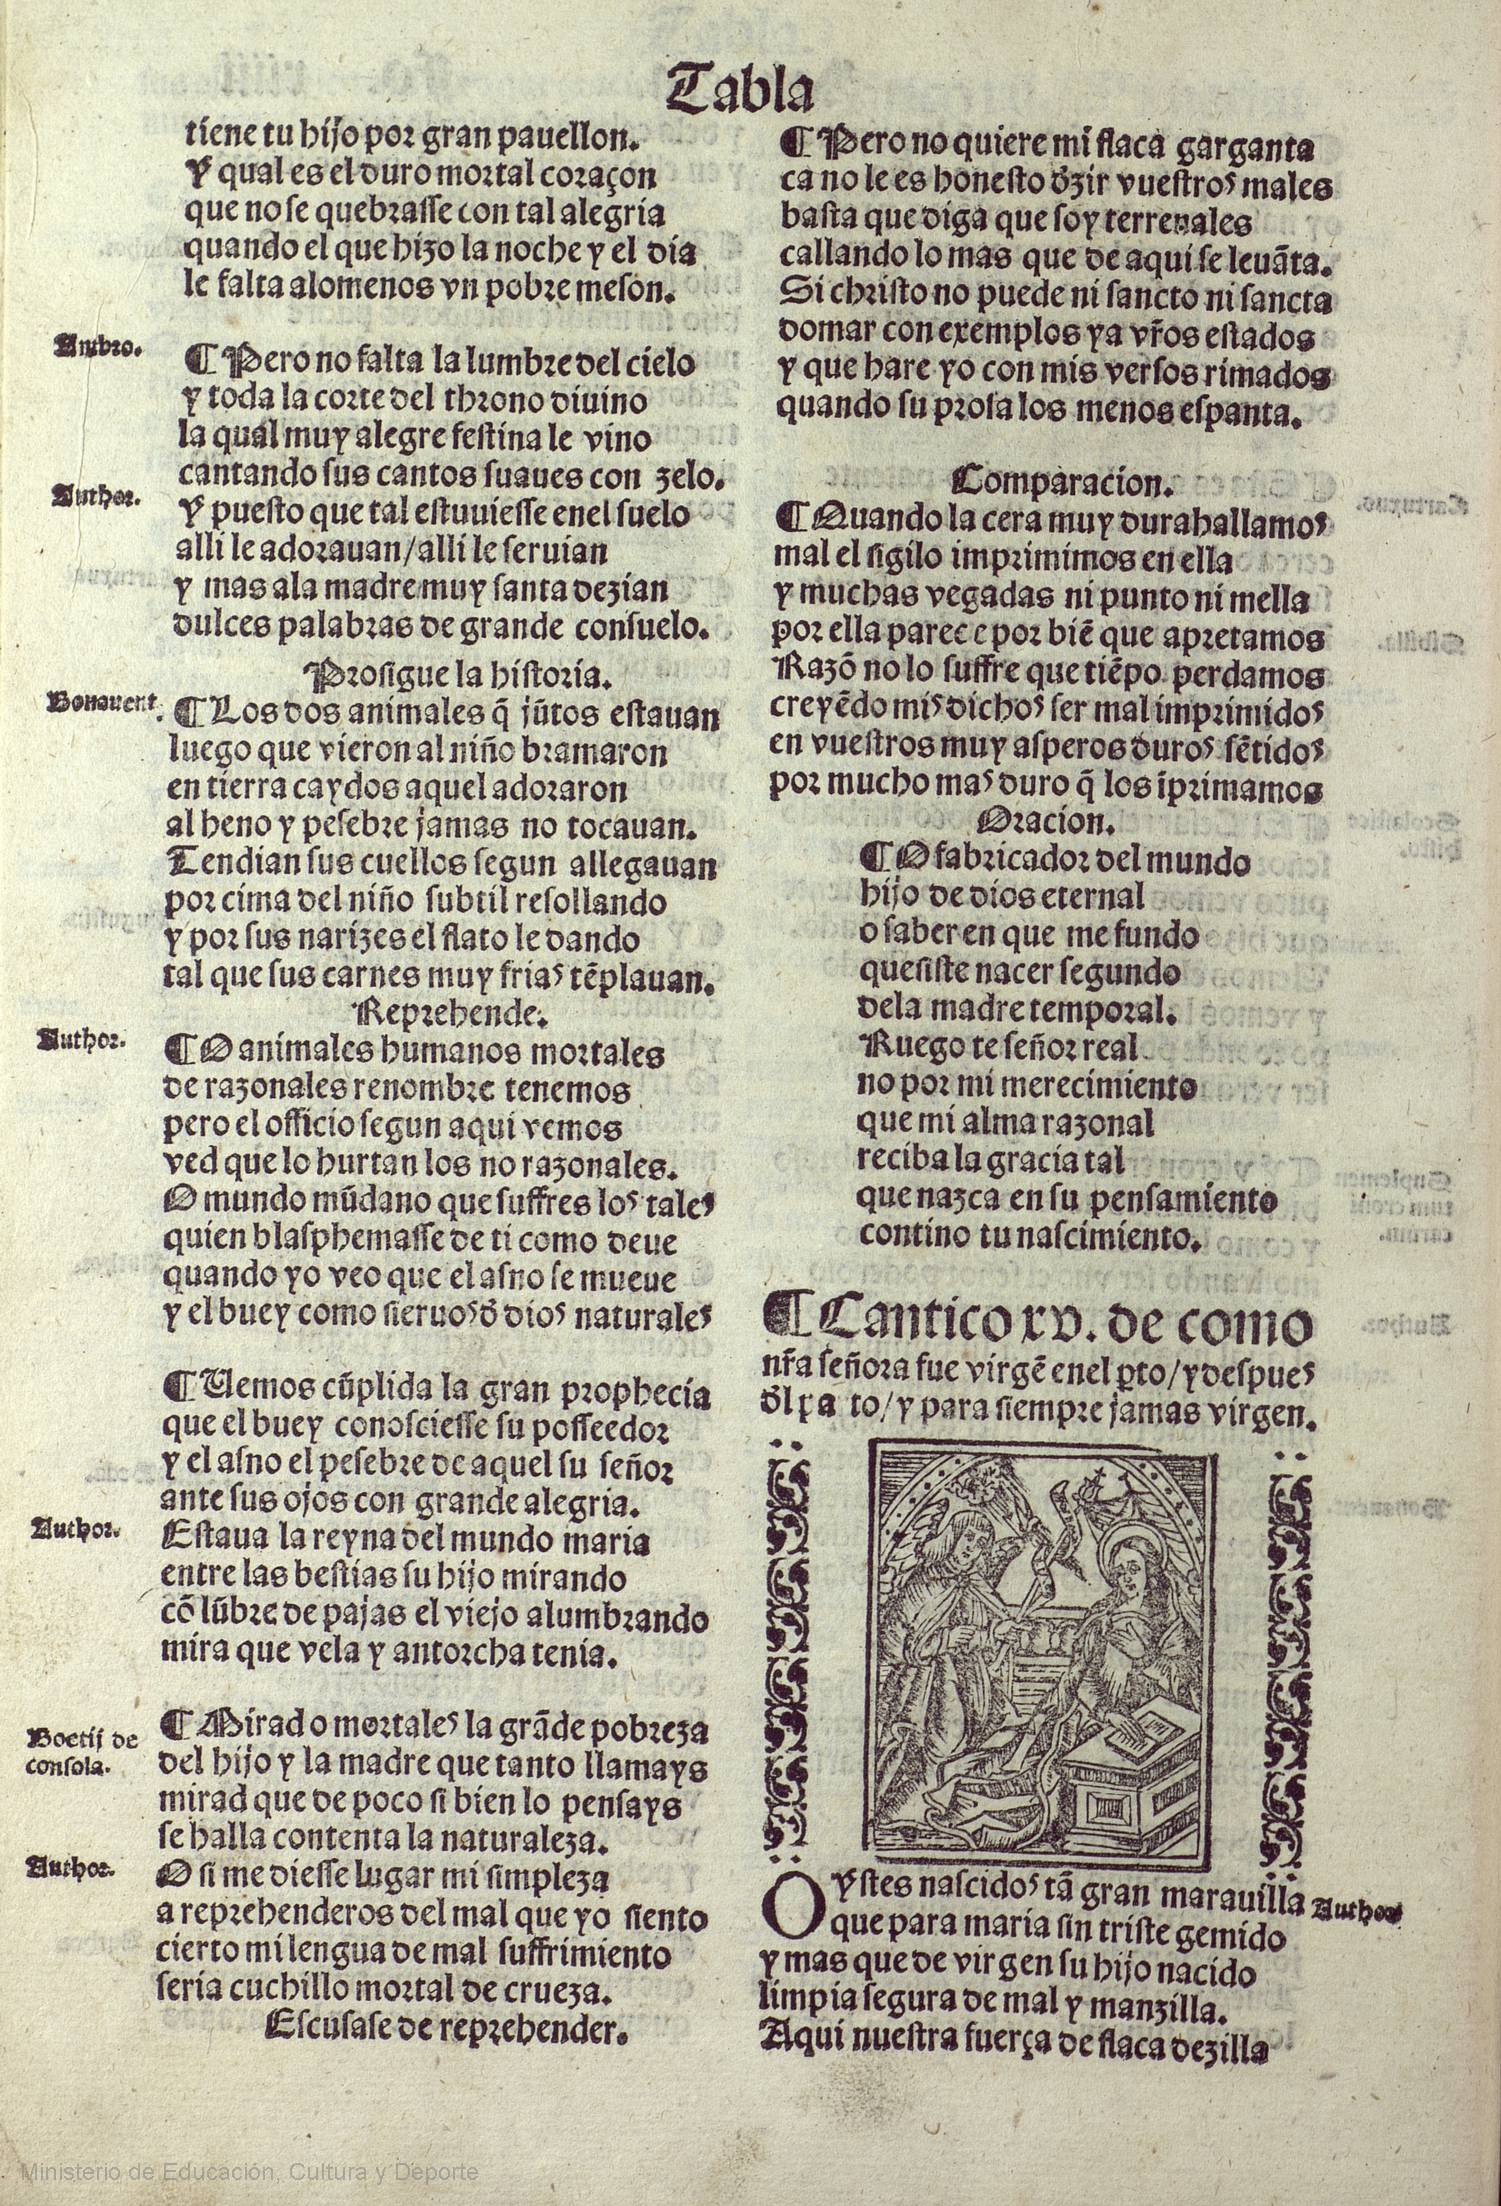 Tabla
tiene tu hijo por gran pauellon.
Y qual es el duro mortal coraçon
que no se quebrasse con tal alegria
quando el que hizo la noche y el dia
le falta alomenos vn pobre meson.
Ambro.
¶ Pero no falta la lumbre del cielo
y toda la corte del throno diuino
la qual muy alegre festina le vino
cantando sus cantos suaues con zelo.
Author.
Y puesto que tal estuuiesse enel suelo
alli le adorauan/alli le seruian
y mas ala madre muy santa dezian
dulces palabras de grande consuelo.
Prosigue la historia.
Bonauent.
¶ Los dos animales q̃ jũtos estauan
luego que vieron al niño bramaron
en tierra caydos aquel adoraron
al heno y pesebre jamas no tocauan.
Tendian sus cuellos segun allegauan
por cima del niño subtil resollando
y por sus narizes el flato le dando
tal que sus carnes muy frias tẽplauan.
Reprehende.
Author.
¶ O animales humanos mortales
de razonales renombre tenemos
pero el officio segun aqui vemos
ved que lo hurtan los no razonales.
O mundo mũdano que suffres los tales
quien blasphemasse de ti como deue
quando yo veo que el asno se mueue
y el buey como sieruos d̃ dios naturales
¶ Uemos cũplida la gran prophecia
que el buey conosciesse su posseedor
y el asno el pesebre de aquel su señor
ante sus ojos con grande alegria.
Author.
Estaua la reyna del mundo maria
entre las bestias su hijo mirando
cõ lũbre de pajas el viejo alumbrando
mira que vela y antorcha tenia.
Boetij de
consola.
¶ Mirad o mortales la grãde pobreza
del hijo y la madre que tanto llamays
mirad que de poco si bien lo pensays
se halla contenta la naturaleza.
Author.
O si me diesse lugar mi simpleza
a reprehenderos del mal que yo siento
cierto mi lengua de mal suffrimiento
seria cuchillo mortal de crueza.
Escusase de reprehender.
¶ Pero no quiere mi flaca garganta
ca no le es honesto d̃zir vuestros males
basta que diga que soy terrenales
callando lo mas que de aqui se leuãta.
Si christo no puede ni sancto ni sancta
domar con exemplos ya vr̃os estados
y que hare yo con mis versos rimados
quando su prosa los menos espanta.
Comparacion.
¶ Quando la cera muy dura hallamos
mal el sigilo imprimimos en ella
y muchas vegadas ni punto ni mella
por ella parece por biẽ que apretamos
Razõ no lo suffre que tiẽpo perdamos
creyẽdo mis dichos ser mal imprimidos
en vuestros muy asperos duros sẽtidos
por mucho mas duro q̃ los ĩprimamos
Oracion.
¶ O fabricador del mundo
hijo de dios eternal
o saber en que me fundo
quesiste nacer segundo
dela madre temporal.
Ruego te señor real
no por mi merecimiento
que mi alma razonal
reciba la gracia tal
que nazca en su pensamiento
contino tu nascimiento.
¶ Cantico xv. de como
nr̃a señora fue virgẽ enel ꝑto/y despues
d̃l ꝑa to/y para siempre jamas virgen.
Oystes nascidos tã gran marauilla
Author
que para maria sin triste gemido
y mas que de virgen su hijo nacido
limpia segura de mal y manzilla.
Aqui nuestra fuerça de flaca dezilla
Ministerio de Educación, Cultura y Deporte